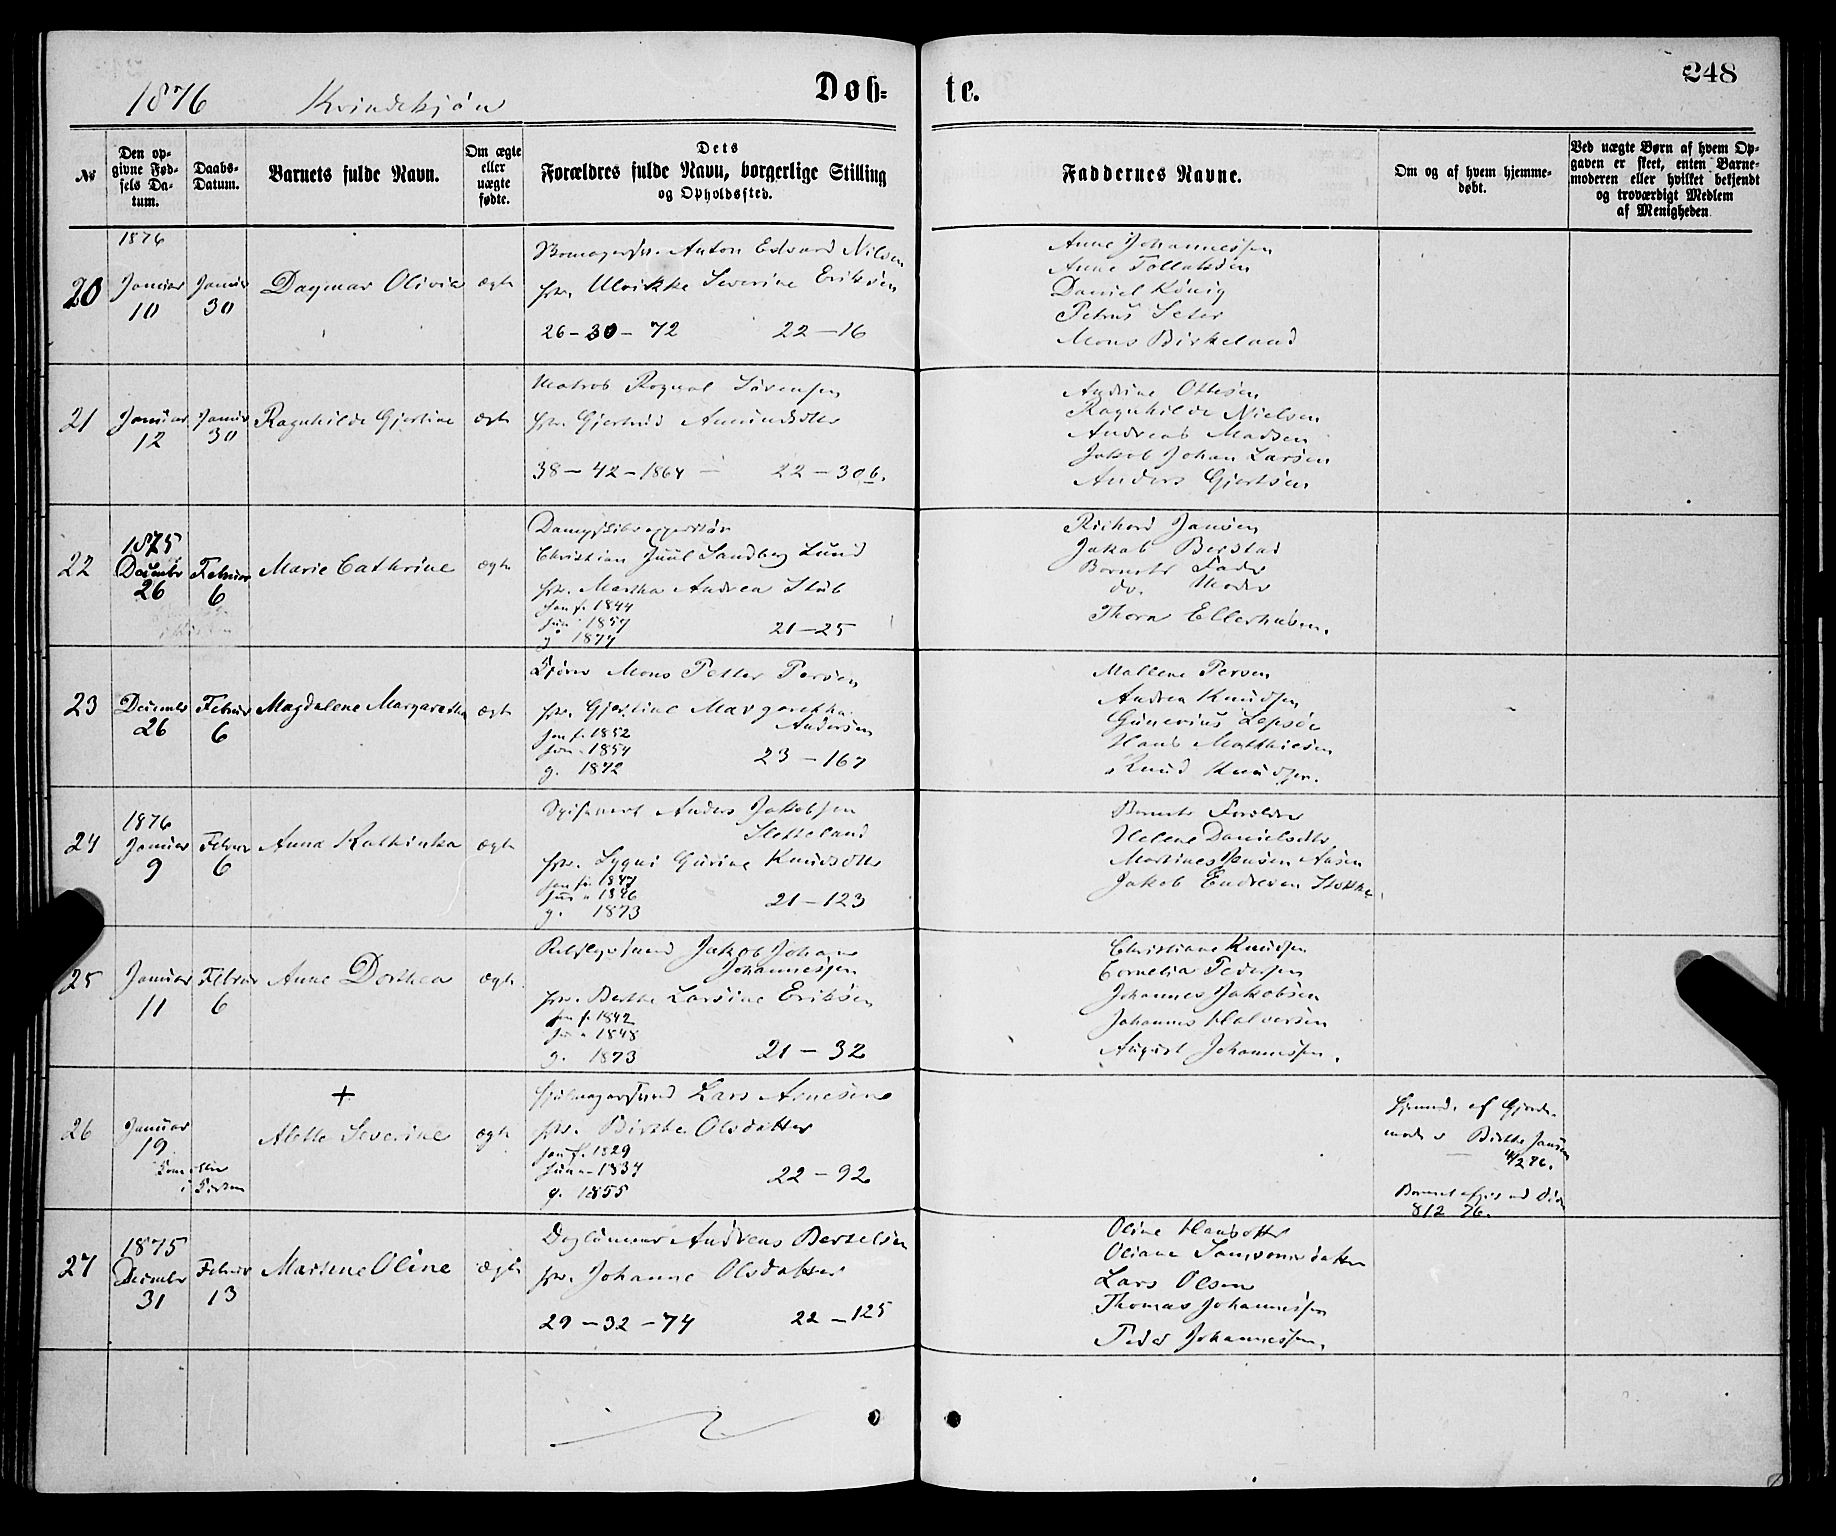 248
1876 Kvindekjøn
Døb= te.
№
Den op-
givne Fød-
sels Da-
tum.
Daabs-
Datum.
Barnets fulde Navn.
Om ægte
eller
uægte
fødte.
Dets
Forældres fulde Navn, borgerlige Stilling
og Opholdssted.
Faddernes Navne.
Om og af hvem hjemme-
døbt.
Ved uægte Børn af hvem Op-
gaven er skeet, enten Barne-
moderen eller hvilket bekjendt
og troværdigt Medlem
af Menigheden.
20
1876
Januar
10
Januar
30
Dagmar Olivia
ægte
Anton Edvard Nilsen
Ulrikke Severine Eriksen
26-30-72 22-16
Anne Johannessen
Anne Tollaksen
Daniel König
Petrus Seter
Mons Birkeland
21
Januar
12
Januar
30
Ragnhilde Gjertine
ægte
Matros Rognal Sørensen
Gjertrud Amundsdtr
38-42-1864 22-30b.
Andrine Ottesen
Ragnhilde Nielsen
Andreas Madsen
Jakob Johan Larsen
Anders Gjertsen
22
1875
December
26
Februar
6
Marie Cathrine
ægte
Christian Juul Sandberg Lund
Martha Andrea Stub
1844
1857
1874
21-25
Richard Jansen
Jakob Berstad
Barnets Fader
do. Moder
Thora Ellerhusen.
23
December
26
Februar
6
Magdalene Margaretha
ægte
Mons Petter Persen
Gjertine Margaretha
Andersen
1852
1854
g. 1872
23-167
Mallene Persen
Andrea Knudsen
Gunerius Lepsøe
Hans Matthiesen
Knud Knudsen.
24
1876
Januar
9
Februar
6
Anna Kathinka
ægte
Anders Jakobsen
Sletteland
Gurine Knudsdtr
1847
1846
g. 1873
21-123
Barnets Forældre
Helene Danielsdtr
Martines Jensen Aasen
Jakob Endresen Stokke.
25
Januar
11
Februar
6
Anne Dorthea
ægte.
Jakob Johan
Johannessen
Berthe Larsine Eriksen
1842
1848
g. 1873
21-32
Christiane Knudsen
Cornelia Pedersen
Johannes Jakobsen
Johannes Halversen
August Johannessen.
26
Januar
19
+
Alette Severine
ægte
Lars Arnesen
Birthe Olsdatter
1829
1834
g. 1855
22-92
Hjemmd. af Gjorde-
moder Birthe Jansen
27
1875
December
31
Februar
13
Martine Oline
ægte
Daglønner Andreas Bertelsen
Johanne Olsdatter
29-32-74 22-125
Oline Hansdtr
Oliane Samsonsdatter
Lars Olsen
Thomas Johannessen
Peder Johannessen.